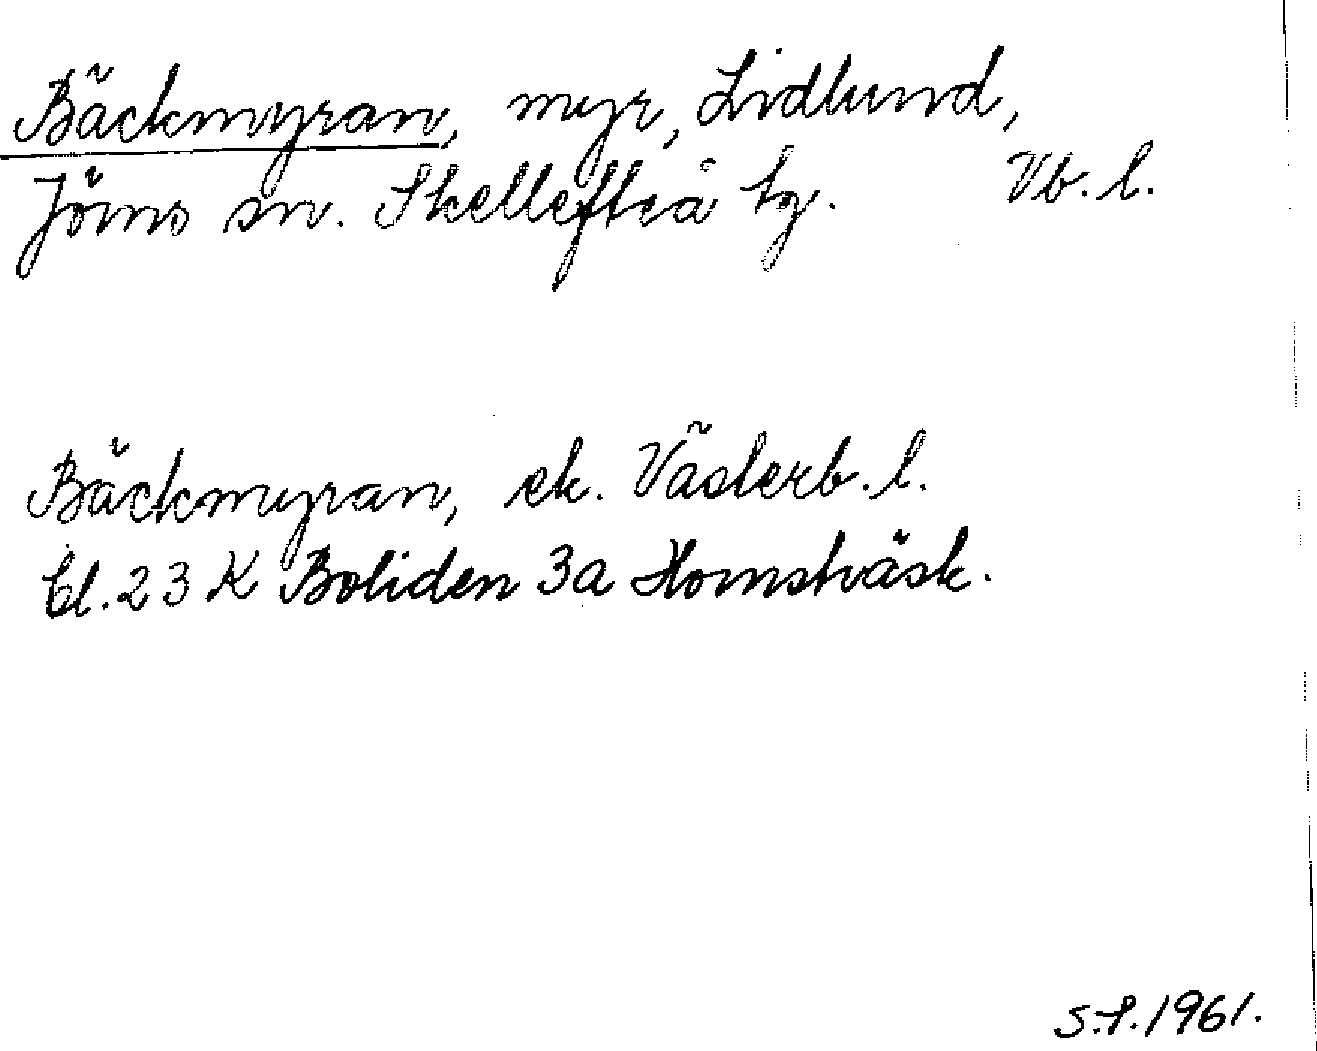 Bäckmyran, myr, Lidlund,
Jörns sn. Skellefteå tg. Vb. l.
Bäckmyran, ek. Västerb. l.
bl. 23 K Boliden 3a Homsträsk.
S.P. 1961.